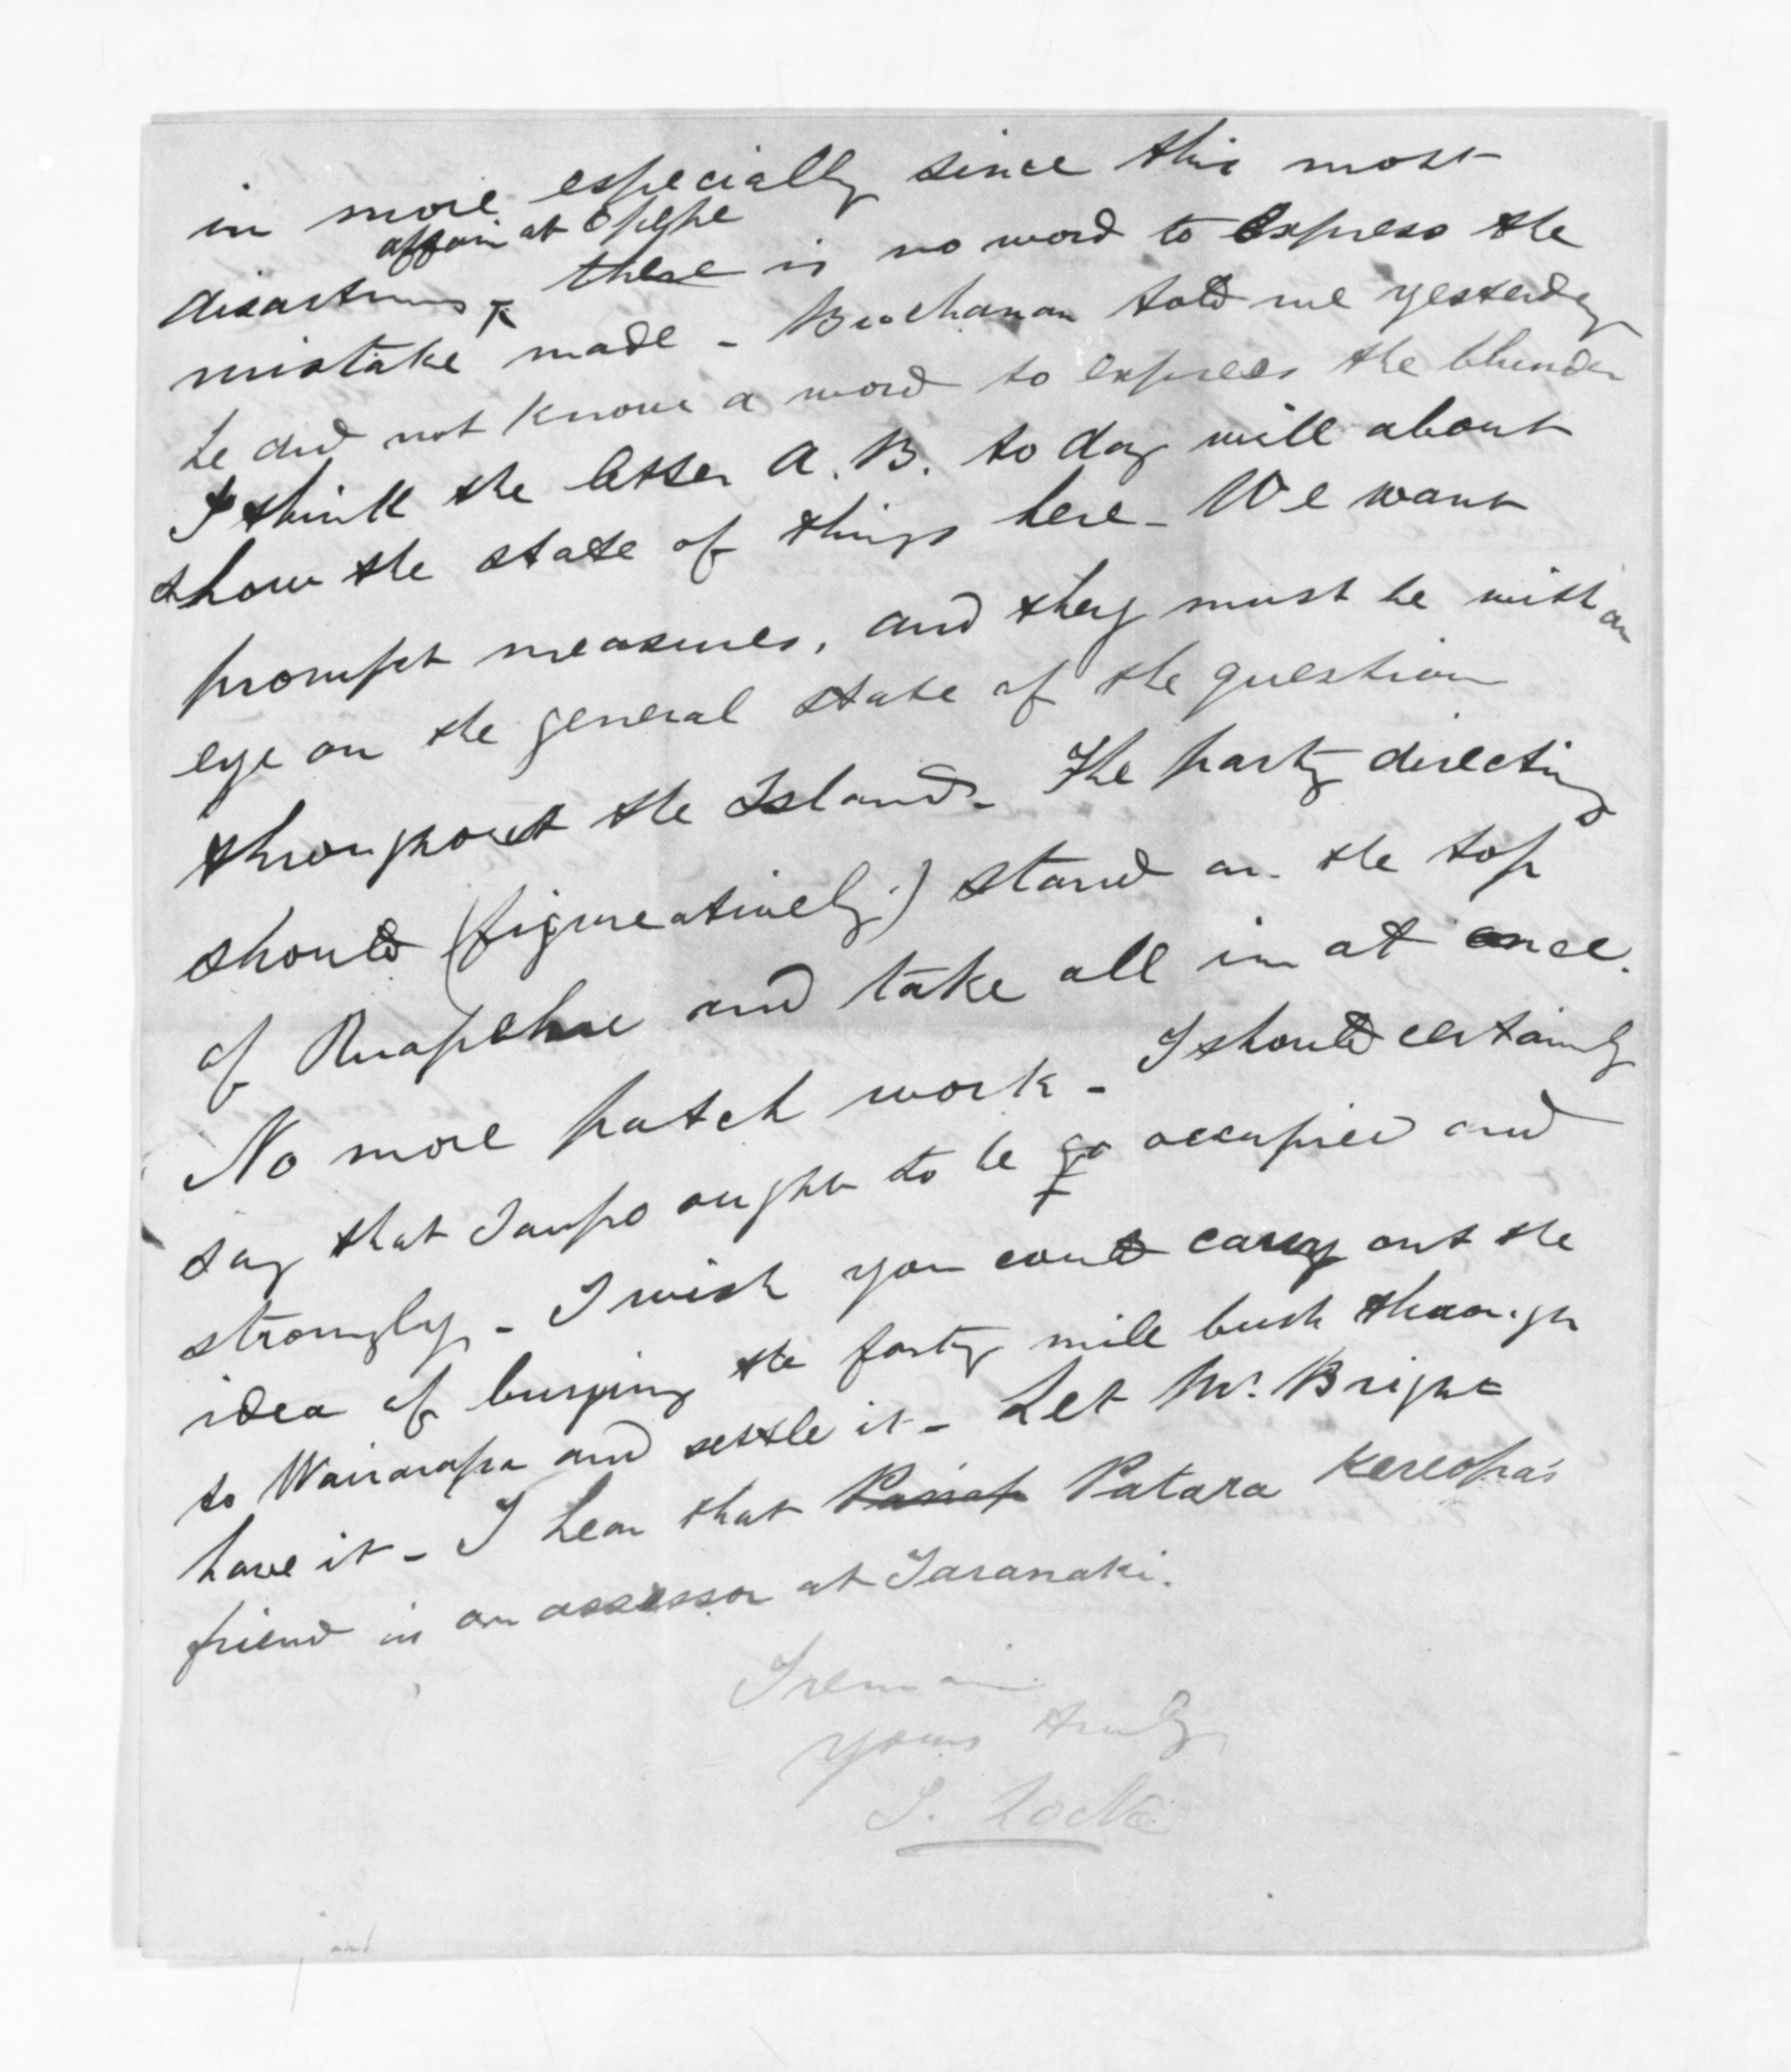 in more especially since this most
affair at Opepe
disastrous there is no word to express the
mistake made - Buchanan told me yesterday
he did not know a word to express the blunder
I think the letter A. B. to day will about
show the state of things here - We want
prompt measures, and they must be with an
eye on the general state of the question
throughout the Island - The party directing
should (figureatively) stand on the top
of Ruapehue and take all in at once.
No more patch work - I should certainly
say that Taupo ought to be occupied and
strongly - I wish you could carry out the
idea of the forty mile bush through
to Wairarapa and settle it - Let Mr. Bright
have it - I hear that Patara Kereopa's
friend is an assessor at Taranaki.
I remain
yours truly
S. Locke
and